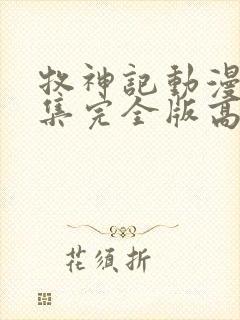 牧神記動漫
集完全版高
花須折